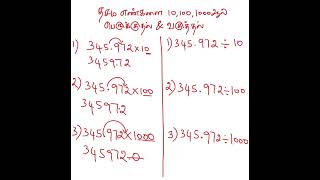 தசம எண்களை 10,100,1000ஆல்
பெருக்குதல் & வகுத்தல்
1) 345.972×10
3459.72
2) 345.972×100
34597.2
3) 345.972×1000
345972.0
1) 345.972÷10
2) 345.972÷100
3) 345.972÷1000